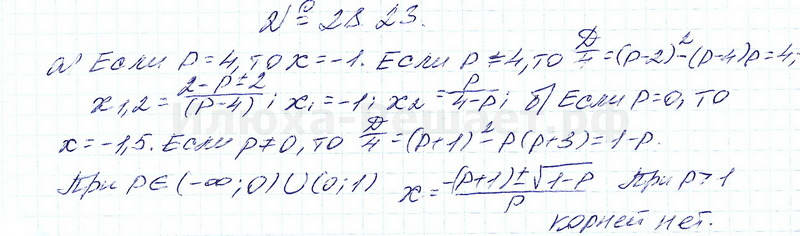 № 28.23.
а) Если p = 4, то x = -1. Если p ≠ 4, то D/4 = (p-2)² - (p-4)p = 4;
x₁,₂ = (2-p±2)/(p-4); x₁ = -1; x₂ = p/(4-p); б) Если p=0, то
x = -1,5. Если p ≠ 0, то D/4 = (p+1)² - p(p+3) = 1-p.
При p ∈ (-∞; 0) ∪ (0; 1) x = (-(p+1) ± √(1-p))/p При p > 1
корней нет.